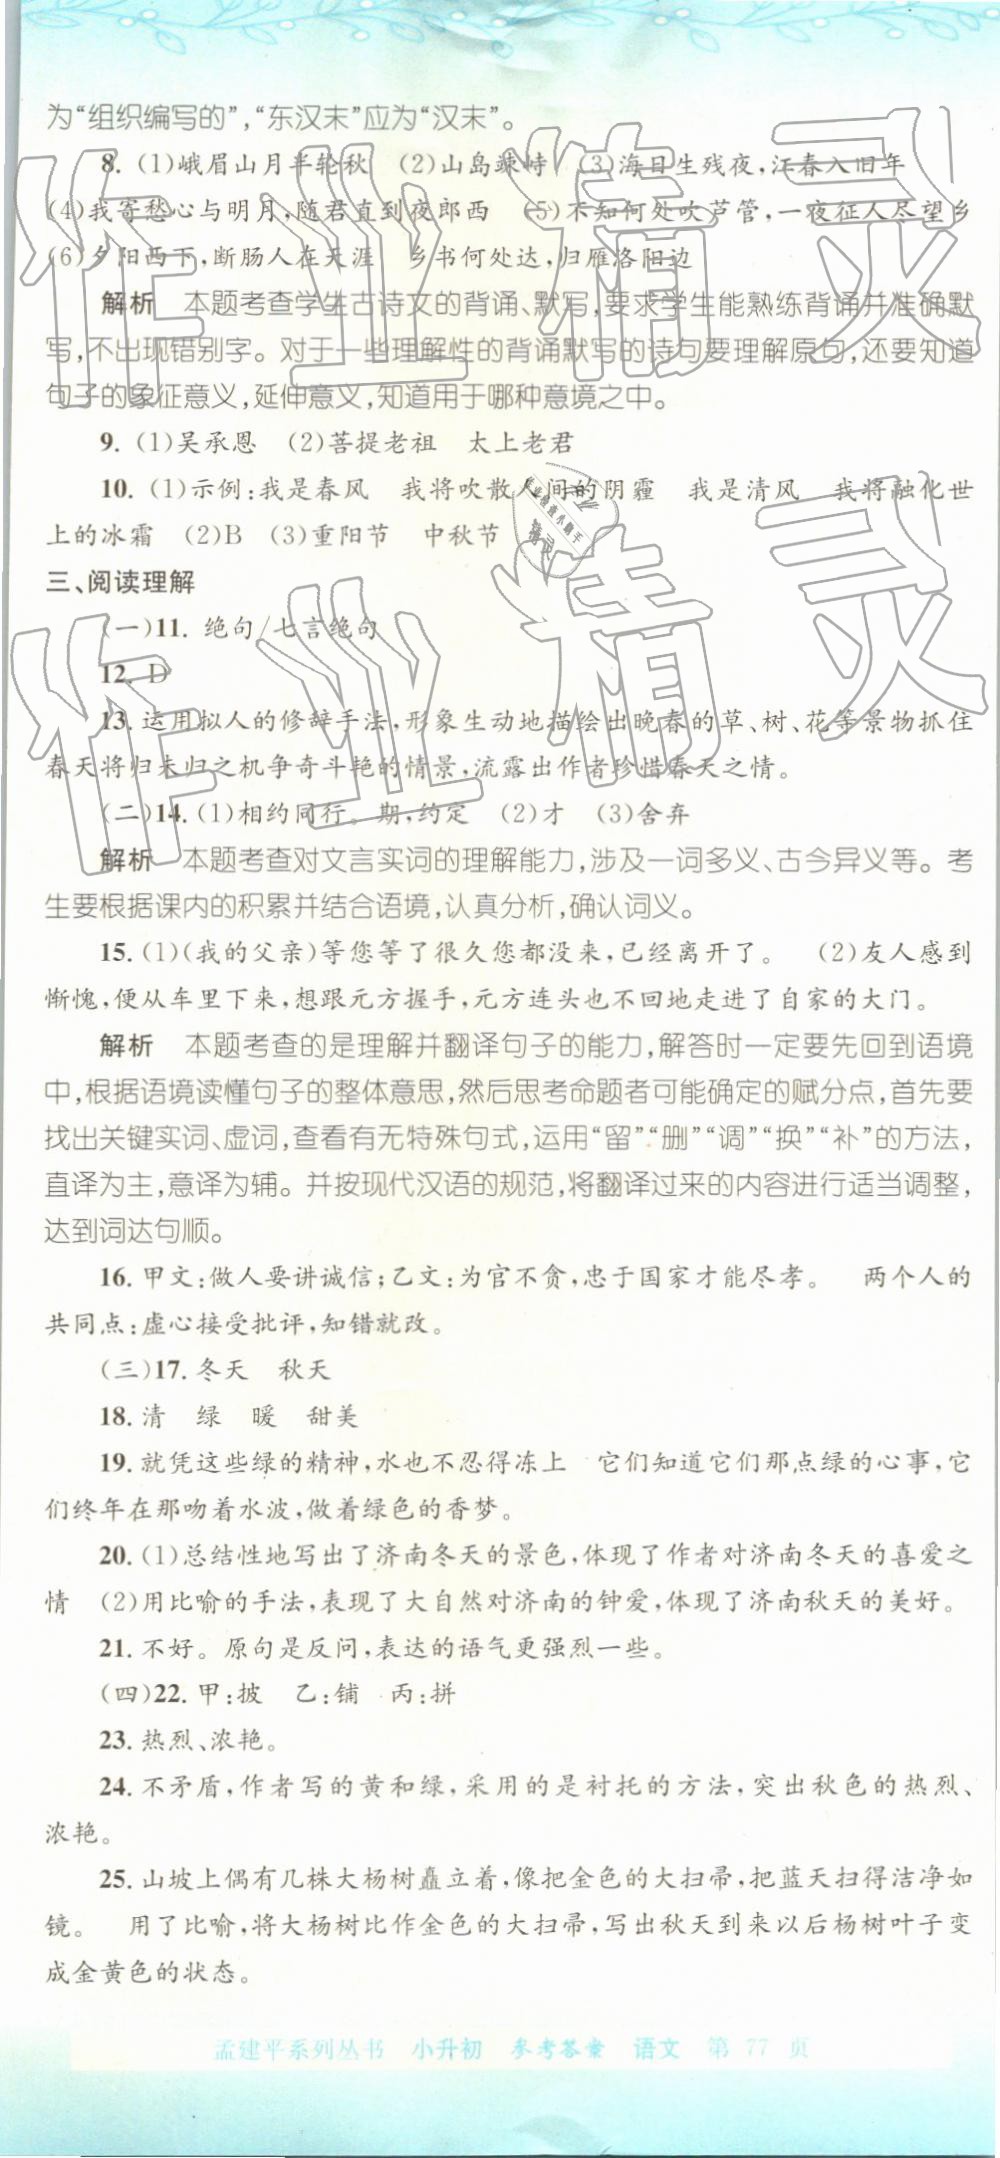 为“组织编写的”,“东汉末”应为“汉末”。
8. (1)峨眉山月半轮秋 (2)山岛竦峙 (3)海日生残夜,江春入旧年
(4)我寄愁心与明月,随君直到夜郎西 (5)不知何处吹芦管,一夜征人尽望乡
(6)夕阳西下,断肠人在天涯 乡书何处达,归雁洛阳边
解析 本题考查学生古诗文的背诵、默写,要求学生能熟练背诵并准确默
写,不出现错别字。对于一些理解性的背诵默写的诗句要理解原句,还要知道
句子的象征意义,延伸意义,知道用于哪种意境之中。
9. (1)吴承恩 (2)菩提老祖 太上老君
10. (1)示例:我是春风 我将吹散人间的阴霾 我是清风 我将融化世
上的冰霜 (2)B (3)重阳节 中秋节
三、阅读理解
(一)11. 绝句/七言绝句
12. D
13. 运用拟人的修辞手法,形象生动地描绘出晚春的草、树、花等景物抓住
春天将归未归之机争奇斗艳的情景,流露出作者珍惜春天之情。
(二)14. (1)相约同行。期,约定 (2)才 (3)舍弃
解析 本题考查对文言实词的理解能力,涉及一词多义、古今异义等。考
生要根据课内的积累并结合语境,认真分析,确认词义。
15. (1)(我的父亲)等您等了很久您都没来,已经离开了。 (2)友人感到
惭愧,便从车里下来,想跟元方握手,元方连头也不回地走进了自家的大门。
解析 本题考查的是理解并翻译句子的能力,解答时一定要先回到语境
中,根据语境读懂句子的整体意思,然后思考命题者可能确定的赋分点,首先要
找出关键实词、虚词,查看有无特殊句式,运用“留”“删”“调”“换”“补”的方法,
直译为主,意译为辅。并按现代汉语的规范,将翻译过来的内容进行适当调整,
达到词达句顺。
16. 甲文:做人要讲诚信;乙文:为官不贪,忠于国家才能尽孝。 两个人的
共同点:虚心接受批评,知错就改。
(三)17. 冬天 秋天
18. 清 绿 暖 甜美
19. 就凭这些绿的精神,水也不忍得冻上 它们知道它们那点绿的心事,它
们终年在那吻着水波,做着绿色的香梦。
20. (1)总结性地写出了济南冬天的景色,体现了作者对济南冬天的喜爱之
情 (2)用比喻的手法,表现了大自然对济南的钟爱,体现了济南秋天的美好。
21. 不好。原句是反问,表达的语气更强烈一些。
(四)22. 甲:披 乙:铺 丙:拼
23. 热烈、浓艳。
24. 不矛盾,作者写的黄和绿,采用的是衬托的方法,突出秋色的热烈、
浓艳。
25. 山坡上偶有几株大杨树矗立着,像把金色的大扫帚,把蓝天扫得洁净如
镜。 用了比喻,将大杨树比作金色的大扫帚,写出秋天到来以后杨树叶子变
成金黄色的状态。
孟建平系列丛书 小升初 参考答案 语文 第 77 页
作业精灵
作业精灵